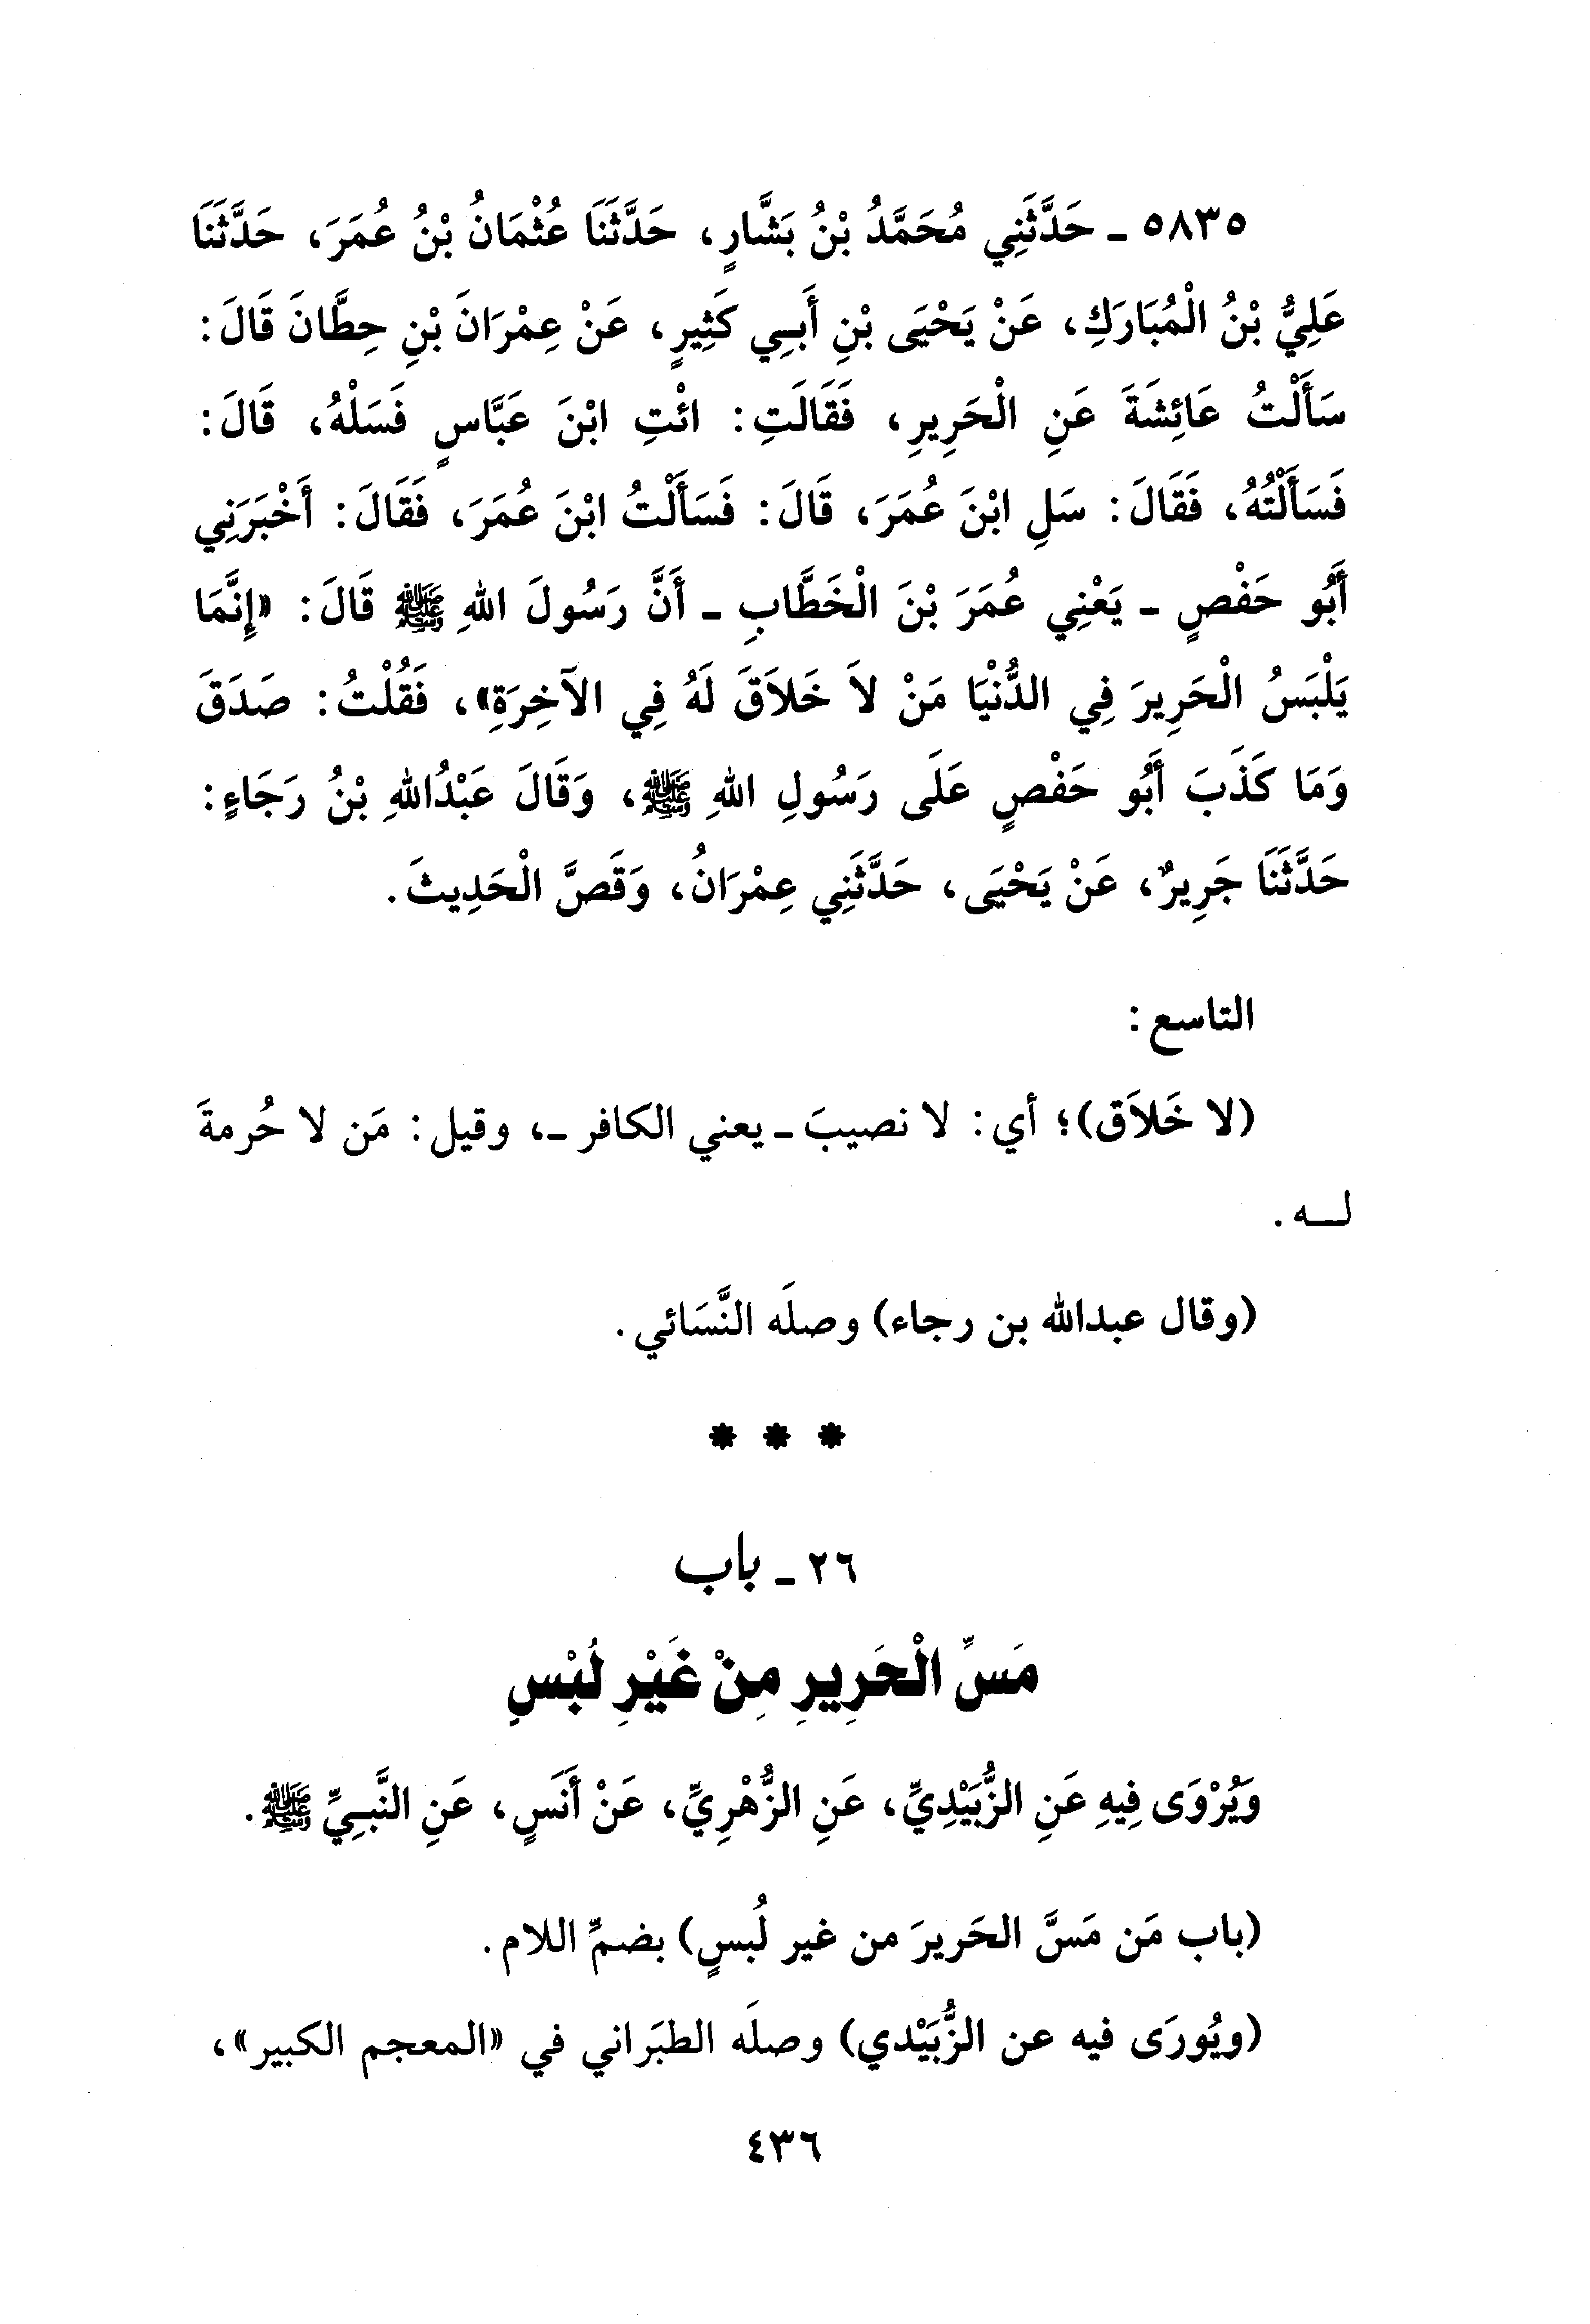 ٥٨٣٥ ـ حَدَّثَنِي مُحَمَّدُ بْنُ بَشَّارٍ، حَدَّثَنَا عُثْمَانُ بْنُ عُمَرَ، حَدَّثَنَا
عَلِيُّ بْنُ الْمُبَارَكِ، عَنْ يَحْيَى بْنِ أَبِي كَثِيرٍ، عَنْ عِمْرَانَ بْنِ حِطَّانَ قَالَ:
سَأَلْتُ عَائِشَةَ عَنِ الْحَرِيرِ، فَقَالَتِ: ائْتِ ابْنَ عَبَّاسٍ فَسَلْهُ، قَالَ:
فَسَأَلْتُهُ، فَقَالَ: سَلِ ابْنَ عُمَرَ، قَالَ: فَسَأَلْتُ ابْنَ عُمَرَ، فَقَالَ: أَخْبَرَنِي
أَبُو حَفْصٍ ـ يَعْنِي عُمَرَ بْنَ الْخَطَّابِ ـ أَنَّ رَسُولَ اللهِ ﷺ قَالَ: «إِنَّمَا
يَلْبَسُ الْحَرِيرَ فِي الدُّنْيَا مَنْ لاَ خَلاَقَ لَهُ فِي الآخِرَةِ»، فَقُلْتُ: صَدَقَ
وَمَا كَذَبَ أَبُو حَفْصٍ عَلَى رَسُولِ اللهِ ﷺ، وَقَالَ عَبْدُاللهِ بْنُ رَجَاءٍ:
حَدَّثَنَا جَرِيرٌ، عَنْ يَحْيَى، حَدَّثَنِي عِمْرَانُ، وَقَصَّ الْحَدِيثَ.
التاسع:
(لا خَلاَق)؛ أي: لا نصيبَ ـ يعني الكافر ـ، وقيل: مَن لا حُرمةَ
لـه.
(وقال عبدالله بن رجاء) وصلَه النَّسَائي.
* * *
٢٦ ـ باب
مَسِّ الْحَرِيرِ مِنْ غَيْرِ لُبْسٍ
وَيُرْوَى فِيهِ عَنِ الزُّبَيْدِيِّ، عَنِ الزُّهْرِيِّ، عَنْ أَنَسٍ، عَنِ النَّبِيِّ ﷺ.
(باب مَن مَسَّ الحَريرَ من غير لُبسٍ) بضمِّ اللام.
(ويُورَى فيه عن الزُّبَيْدي) وصلَه الطبَراني في «المعجم الكبير»،
٤٣٦